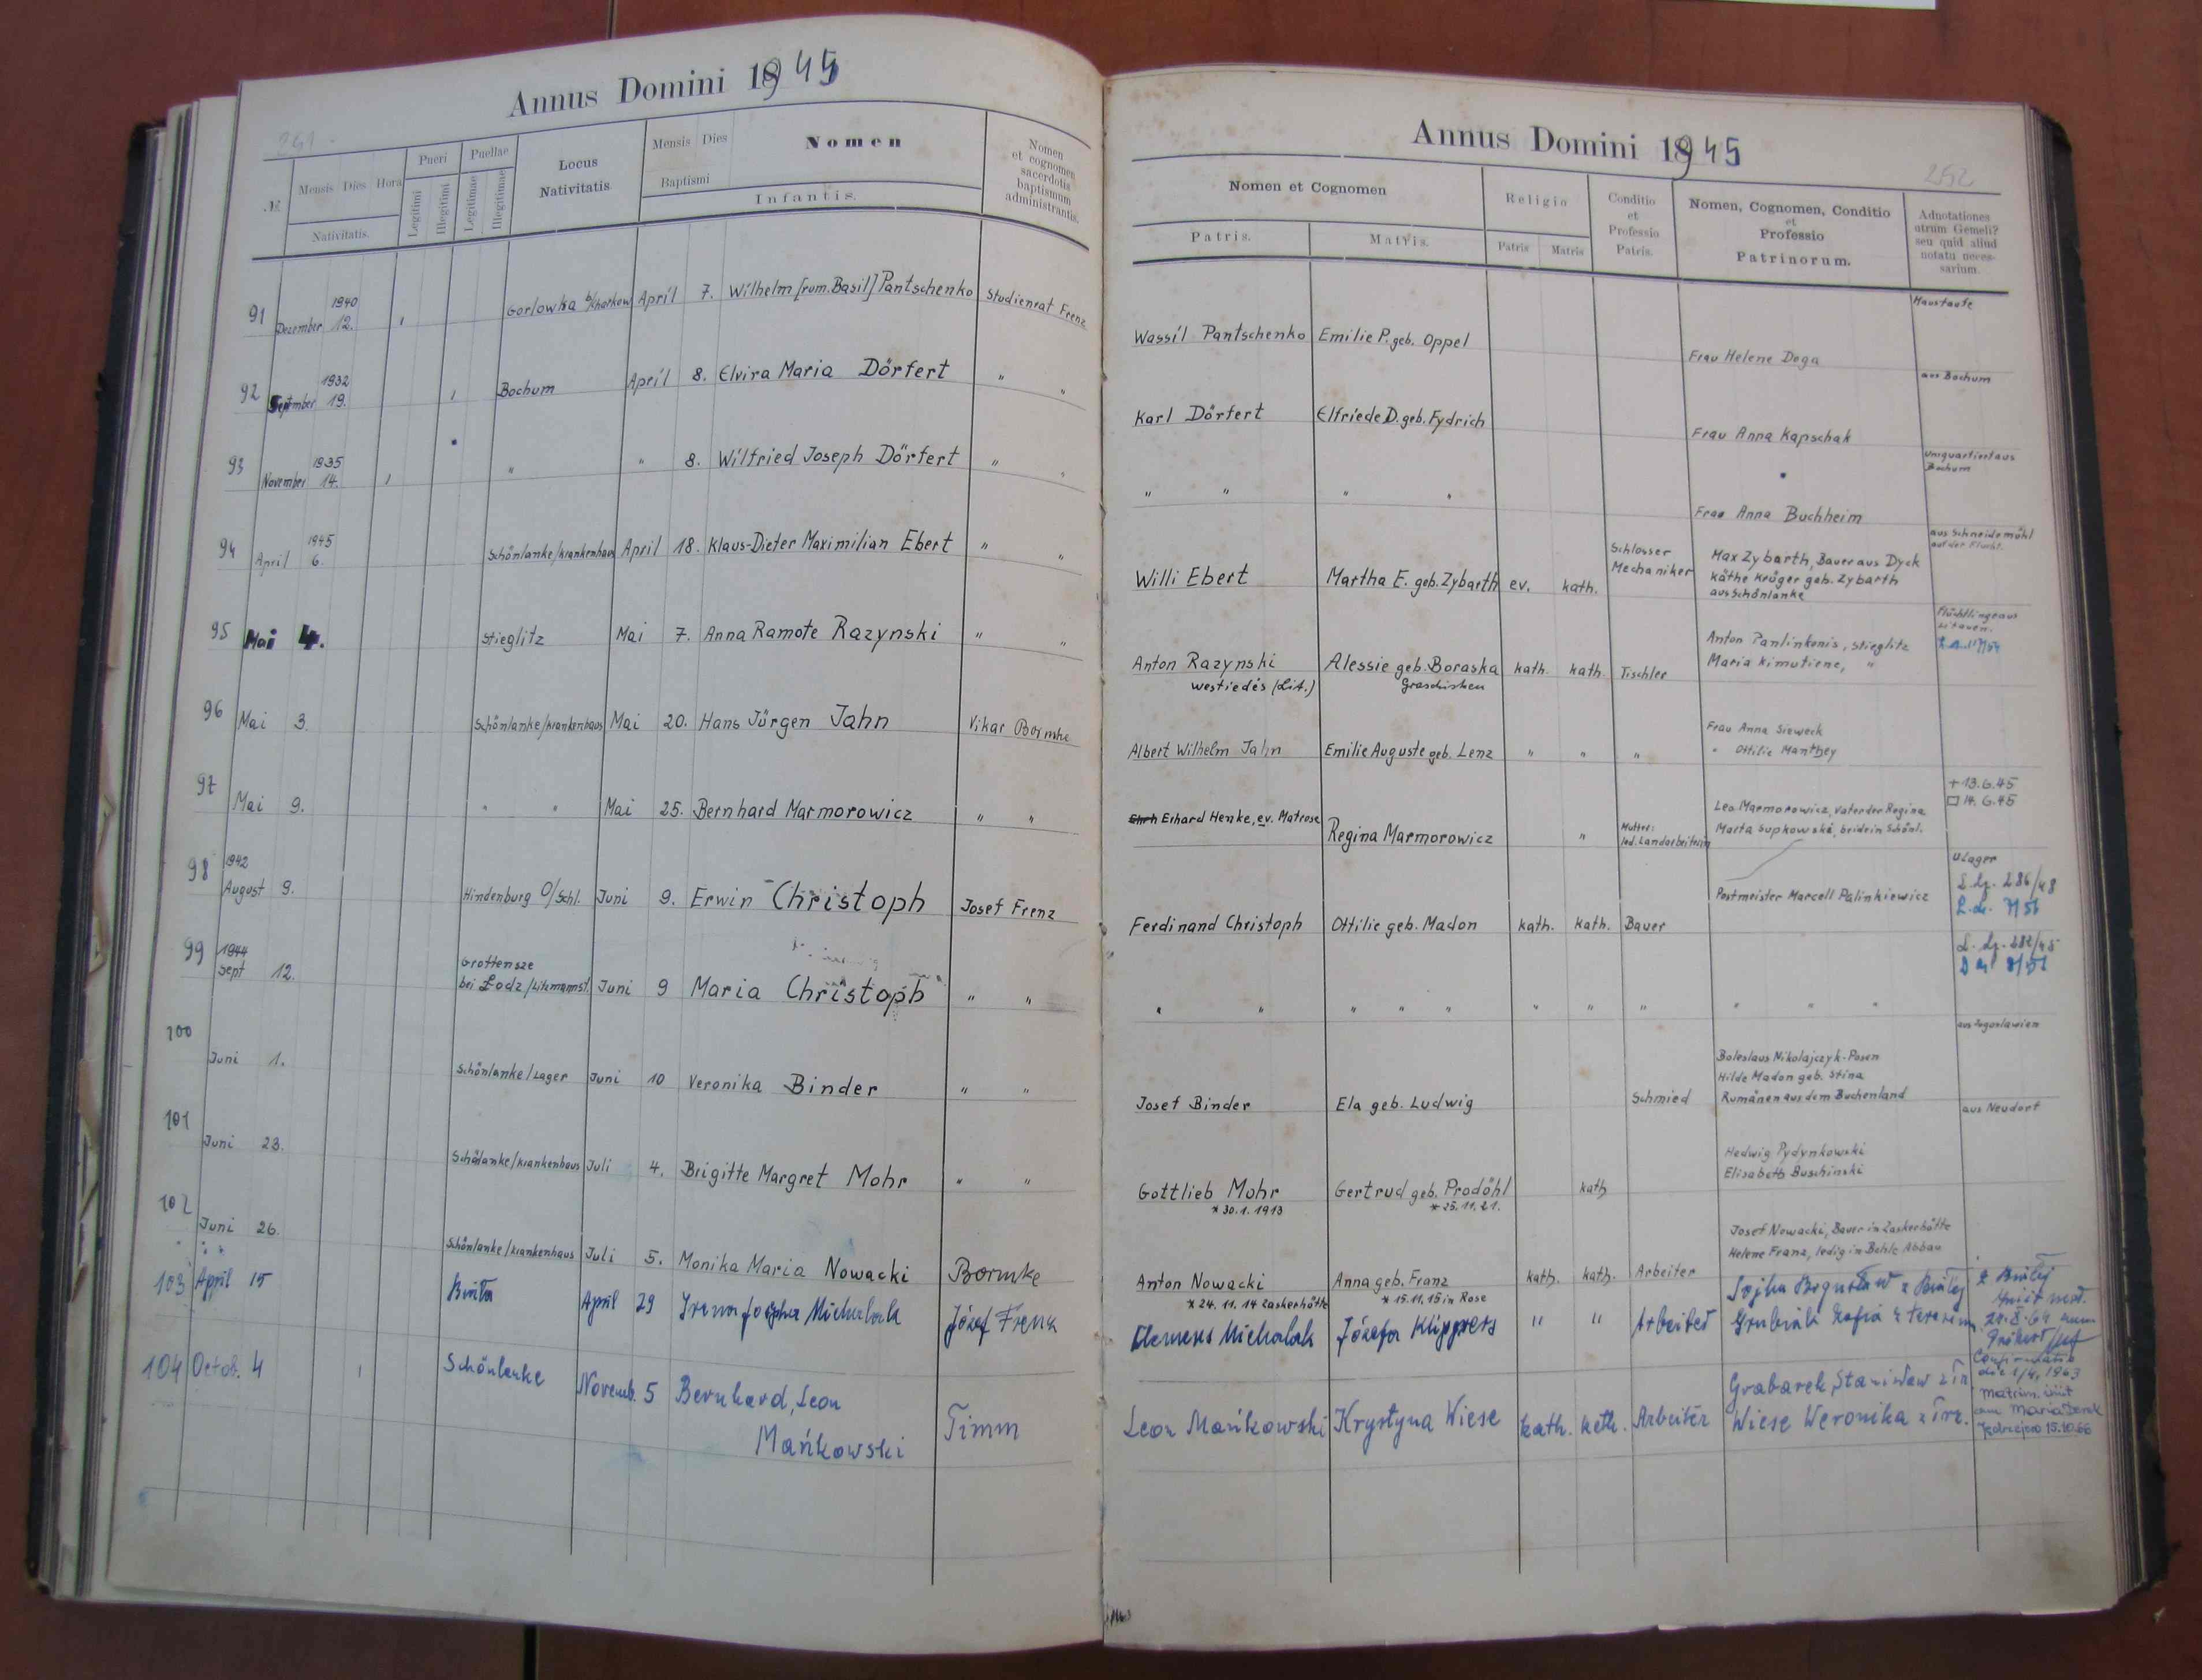 Annus Domini 1945
251
№
Mensis Dies Hora
Nativitatis.
Pueri
Legitimi
Illegitimi
Puellae
Legitimae
Illegitimae
Locus
Nativitatis.
Mensis Dies
Baptismi
Nomen
Infantis.
Nomen
et cognomen
sacerdotis
baptismum
administrantis.
91 Dezember 1940 12. Gorlowka b/Charkow April 7. Wilhelm [rum. Basil] Pantschenko Studienrat Frenz
92 September 1932 19. Bochum April 8. Elvira Maria Dörfert " "
93 November 1935 14. " " 8. Wilfried Joseph Dörfert " "
94 April 1945 6. Schönlanke/Krankenhaus April 18. Klaus-Dieter Maximilian Ebert " "
95 Mai 4. Stieglitz Mai 7. Anna Ramote Razynski " "
96 Mai 3. Schönlanke/Krankenhaus Mai 20. Hans Jürgen Jahn Vikar Bormke
97 Mai 9. " " Mai 25. Bernhard Marmorowicz " "
98 1942 August 9. Hindenburg O/Schl. Juni 9. Erwin Christoph Josef Frenz
99 1944 Sept 12. Grottensze
bei Łodz/Litzmannst. Juni 9 Maria Christoph " "
100 Juni 1. Schönlanke/Lager Juni 10 Veronika Binder " "
101 Juni 23. Schönlanke/Krankenhaus Juli 4. Brigitte Margret Mohr " "
102 Juni 26. Schönlanke/Krankenhaus Juli 5. Monika Maria Nowacki Bormke
103 April 15 Biała April 29 Irena Józepha Michalak Józef Frenz
104 Octob. 4 Schönlanke Novemb. 5 Bernhard, Leon
Mańkowski Timm
Annus Domini 1945
252
Nomen et Cognomen
Patris. Matris.
Religio
Patris Matris
Conditio
et
Professio
Patris.
Nomen, Cognomen, Conditio
et
Professio
Patrinorum.
Adnotationes
utrum Gemeli?
seu quid aliud
notatu neces-
sarium.
Haustaufe
Wassil Pantschenko Emilie P. geb. Oppel Frau Helene Dega
aus Bochum
Karl Dörfert Elfriede D. geb. Fydrich Frau Anna Kapschak
Umquartiert aus
Bochum
" " " " Frau Anna Buchheim
aus Schneidemühl
auf der Flucht.
Willi Ebert Martha E. geb. Zybarth ev. kath. Schlosser
Mechaniker
Max Zybarth, Bauer aus Dyck
Käthe Krüger geb. Zybarth
aus Schönlanke
Flüchtlinge aus
Litauen.
Anton Razynski Alessie geb. Boraska kath. kath. Tischler
Westiedés (Lit.) Graschisken
Anton Panlintenis, Stieglitz
Maria Kimutiene, "
Albert Wilhelm Jahn Emilie Auguste geb. Lenz " " "
Frau Anna Sieweck
" Ottilie Manthey
+ 13.6.45
□ 14.6.45
Ehrh Erhard Henke, ev. Matrose Regina Marmorowicz " Mutter:
led. Landarbeiterin
Leo Marmorowicz, Vater der Regina
Marta Supkowska, beide in Schönl.
U Lager
L. dz. 286/48
Ferdinand Christoph Ottilie geb. Madon kath. kath. Bauer Postmeister Marcell Palinkiewicz
L. dz. 282/45
" " " " " " " " " " "
aus Jugoslawien
Josef Binder Ela geb. Ludwig Schmied
Boleslaus Nikolajczyk-Posen
Hilde Madon geb. Stina
Rumänen aus dem Buchenland
aus Neudorf
Gottlieb Mohr Gertrud geb. Prodöhl kath
* 30.1.1913 * 25.11.21.
Hedwig Pydynkowski
Elisabeth Buschinski
Anton Nowacki Anna geb. Franz kath. kath. Arbeiter
* 24.11.14 Zaskerhütte * 15.11.15 in Rose
Josef Nowacki, Bauer in Zaskerhütte
Helene Franz, ledig in Behle Abbau
Klemens Michalak Józefa Klippers " " Arbeiter
Sojka Bogusław z Białej
Grubiak Zofia z
z Białej
Leon Mańkowski Krystyna Wiese kath. kath. Arbeiter
Grabarek Stanisław z Trz.
Wiese Weronika z Trz.
Confirmatio
die 1/4, 1963
Matrim. iniit
cum Maria
Jędrzejewo 15.10.66